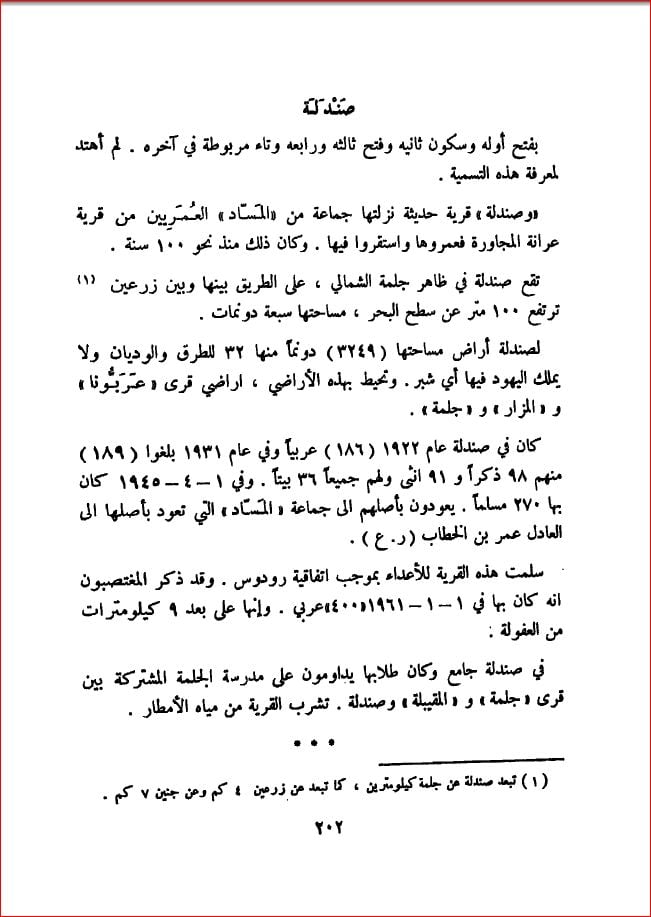 صَنْدَلَة
بفتح أوله وسكون ثانيه وفتح ثالثه ورابعه وتاء مربوطة في آخره . لم أهتد
لمعرفة هذه التسمية .
«وصندلة» قرية حديثة نزلتها جماعة من «المَسّاد» العُمَرِيين من قرية
عرانة المجاورة فعمروها واستقروا فيها . وكان ذلك منذ نحو ١٠٠ سنة .
تقع صندلة في ظاهر جلمة الشمالي ، على الطريق بينها وبين زرعين (١)
ترتفع ١٠٠ متر عن سطح البحر ، مساحتها سبعة دونمات .
لصندلة أراض مساحتها (٣٢٤٩) دونماً منها ٣٢ للطرق والوديان ولا
يملك اليهود فيها أي شبر . وتحيط بهذه الأراضي ، اراضي قرى «عَرَبُّونا»
و «المزار» و «جلمة» .
كان في صندلة عام ١٩٢٢ (١٨٦) عربياً وفي عام ١٩٣١ بلغوا (١٨٩)
منهم ٩٨ ذكراً و ٩١ انثى ولهم جميعاً ٣٦ بيتاً . وفي ١ – ٤ – ١٩٤٥ كان
بها ٢٧٠ مسلماً . يعودون بأصلهم الى جماعة «المَسّاد» التي تعود بأصلها الى
العادل عمر بن الخطاب (ر.ع) .
سلمت هذه القرية للأعداء بموجب اتفاقية رودوس . وقد ذكر المغتصبون
انه كان بها في ١ – ١ – ١٩٦١ «٤٠٠» عربي . وإنها على بعد ٩ كيلومترات
من العفولة :
في صندلة جامع وكان طلابها يداومون على مدرسة الجلمة المشتركة بين
قرى «جلمة» و «المقيبلة» وصندلة . تشرب القرية من مياه الأمطار .
* * *
(١) تبعد صندلة عن جلمة كيلومترين ، كما تبعد عن زرعين ٤ كم وعن جنين ٧ كم .
٢٠٢